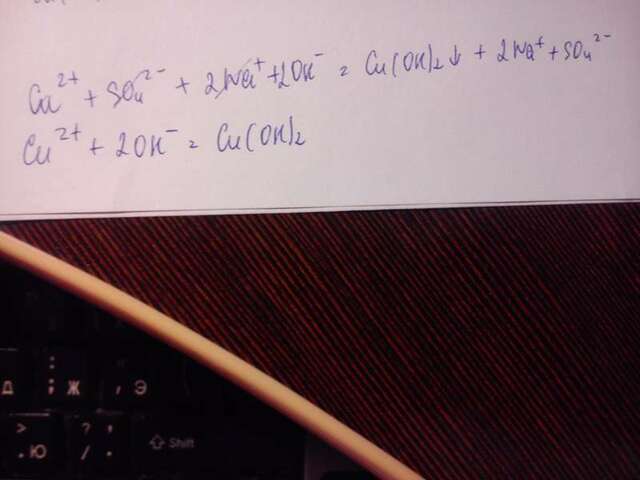 Cu²⁺ + SO₄²⁻ + 2Na⁺ + 2OH⁻ = Cu(OH)₂↓ + 2Na⁺ + SO₄²⁻
Cu²⁺ + 2OH⁻ = Cu(OH)₂
Д : ; Ж , Э
> . Ю ? , / . Shift